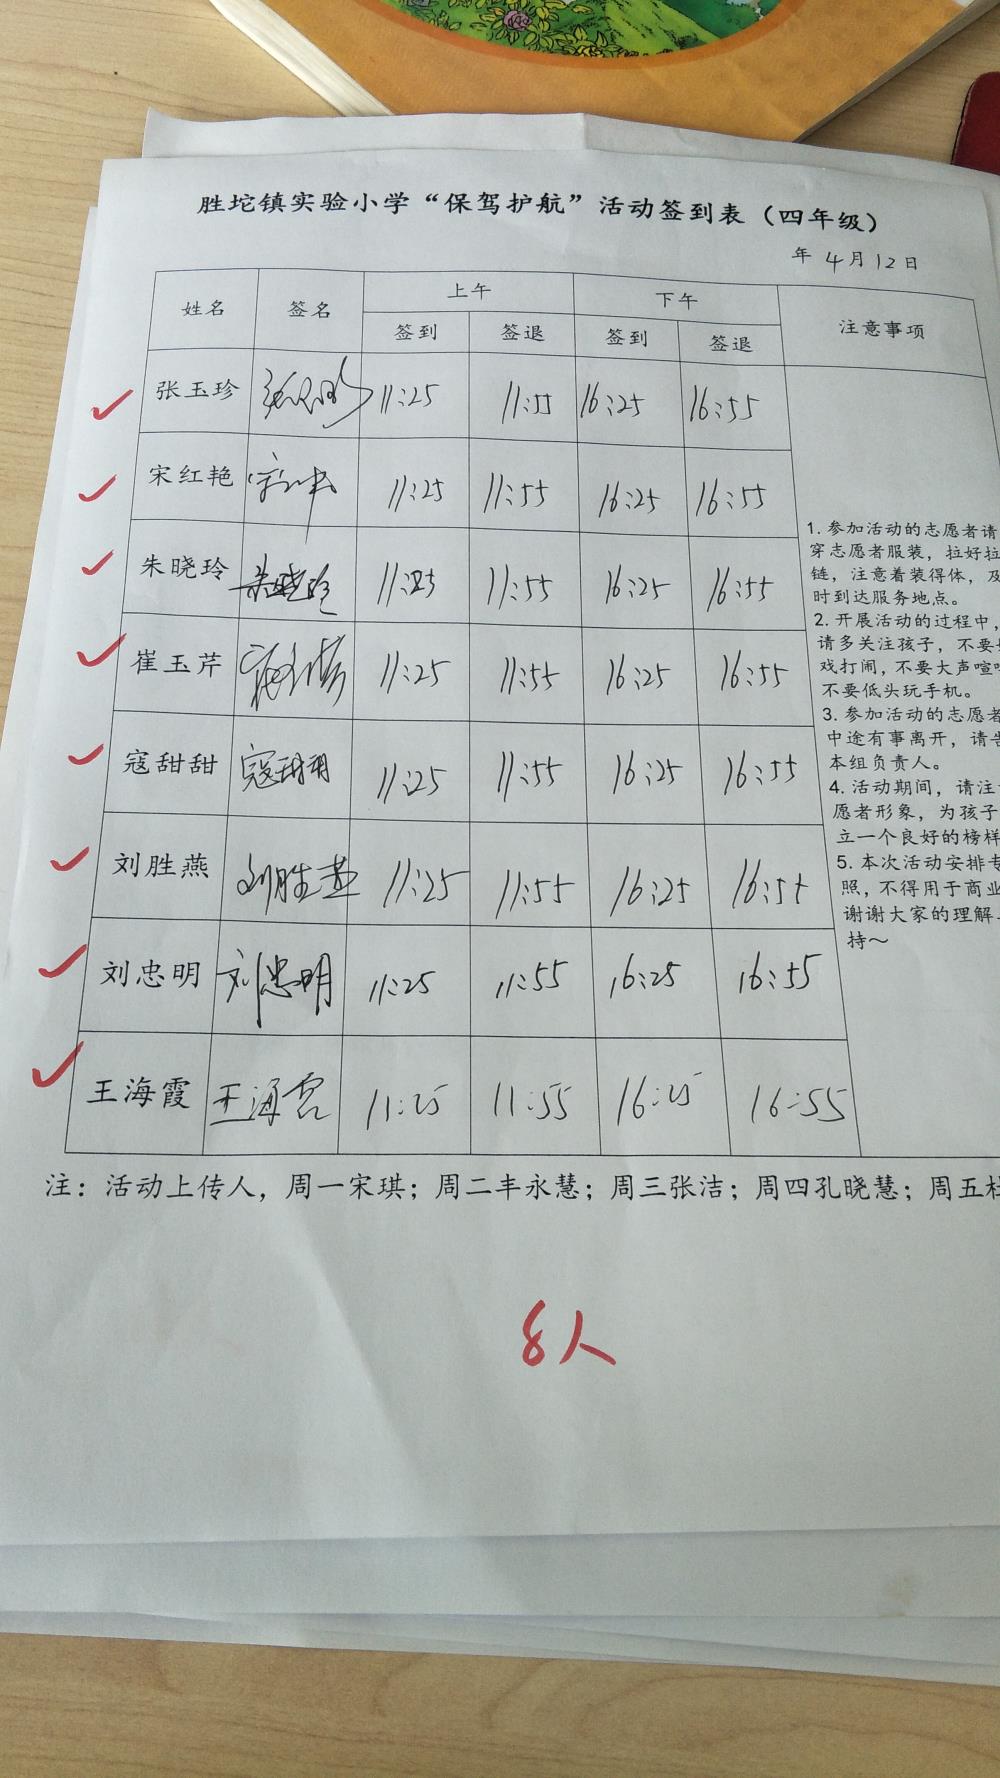 胜坨镇实验小学“保驾护航”活动签到表（四年级）
年 4月12日
姓名 签名 上午 下午 注意事项
签到 签退 签到 签退
张玉珍 11:25 11:55 16:25 16:55
宋红艳 11:25 11:55 16:25 16:55
朱晓玲 朱晓玲 11:25 11:55 16:25 16:55
崔玉芹 11:25 11:55 16:25 16:55
寇甜甜 寇甜甜 11:25 11:55 16:25 16:55
刘胜燕 刘胜燕 11:25 11:55 16:25 16:55
刘忠明 刘忠明 11:25 11:55 16:25 16:55
王海霞 王海霞 11:25 11:55 16:25 16:55
1. 参加活动的志愿者请
穿志愿者服装，拉好拉
链，注意着装得体，及
时到达服务地点。
2. 开展活动的过程中，
请多关注孩子，不要
戏打闹，不要大声喧
不要低头玩手机。
3. 参加活动的志愿者
中途有事离开，请
本组负责人。
4. 活动期间，请注
愿者形象，为孩子
立一个良好的榜样
5. 本次活动安排专
照，不得用于商业
谢谢大家的理解
持～
注：活动上传人，周一宋琪；周二丰永慧；周三张洁；周四孔晓慧；周五杜
8人